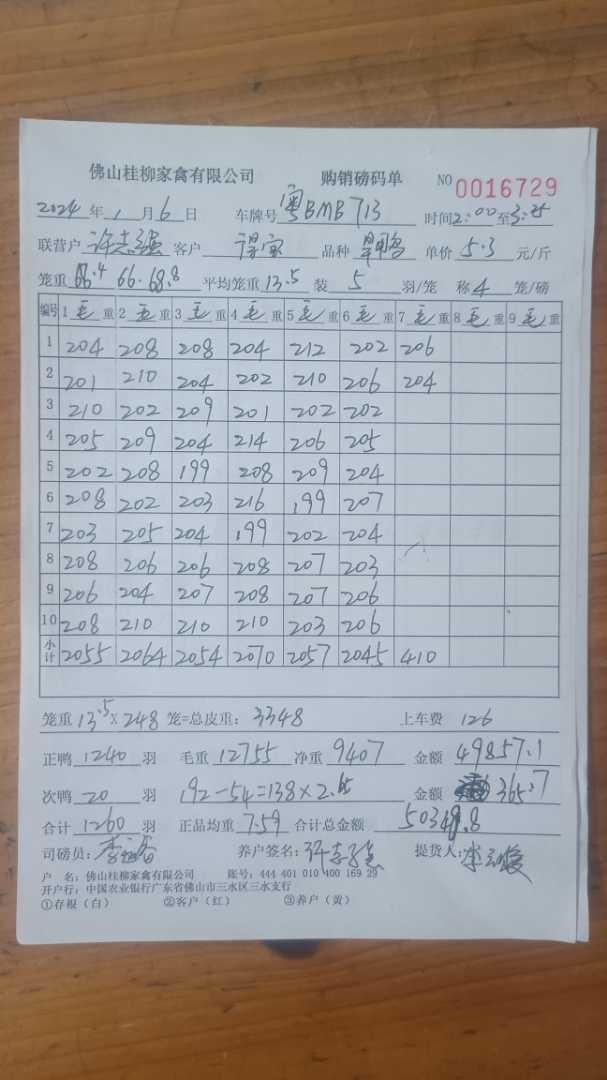 佛山桂柳家禽有限公司 购销磅码单 NO 0016729
2024 年 1 月 6 日 车牌号 粤BMB713 时间2:00至3:25
联营户 许志强 客户 得宝 品种 旱鸭 单价 5.3 元/斤
笼重 66.4 66. 68.8 平均笼重 13.5 装 5 羽/笼 称 4 笼/磅
编号 1 毛 重 2 毛 重 3 毛 重 4 毛 重 5 毛 重 6 毛 重 7 毛 重 8 毛 重 9 毛 重
1 204 208 208 204 212 202 206
2 201 210 204 202 210 206 204
3 210 202 209 201 202 202
4 205 209 204 214 206 205
5 202 208 199 208 209 204
6 208 202 203 216 199 207
7 203 205 204 199 202 204
8 208 206 206 208 207 203
9 206 204 207 208 207 206
10 208 210 210 210 203 206
小计 2055 2064 2054 2070 2057 2045 410
笼重 13.5 X 248 笼=总皮重: 3348 上车费 126
正鸭 1240 羽 毛重 12755 净重 9407 金额 49857.1
次鸭 20 羽 192-54=138×2.65 金额 365.7
合计 1260 羽 正品均重 7.59 合计总金额 50348.8
司磅员: 养户签名: 许志强 提货人:
户 名: 佛山桂柳家禽有限公司 账号: 444 401 010 400 169 29
开户行: 中国农业银行广东省佛山市三水区三水支行
①存根(白) ②客户(红) ③养户(黄)